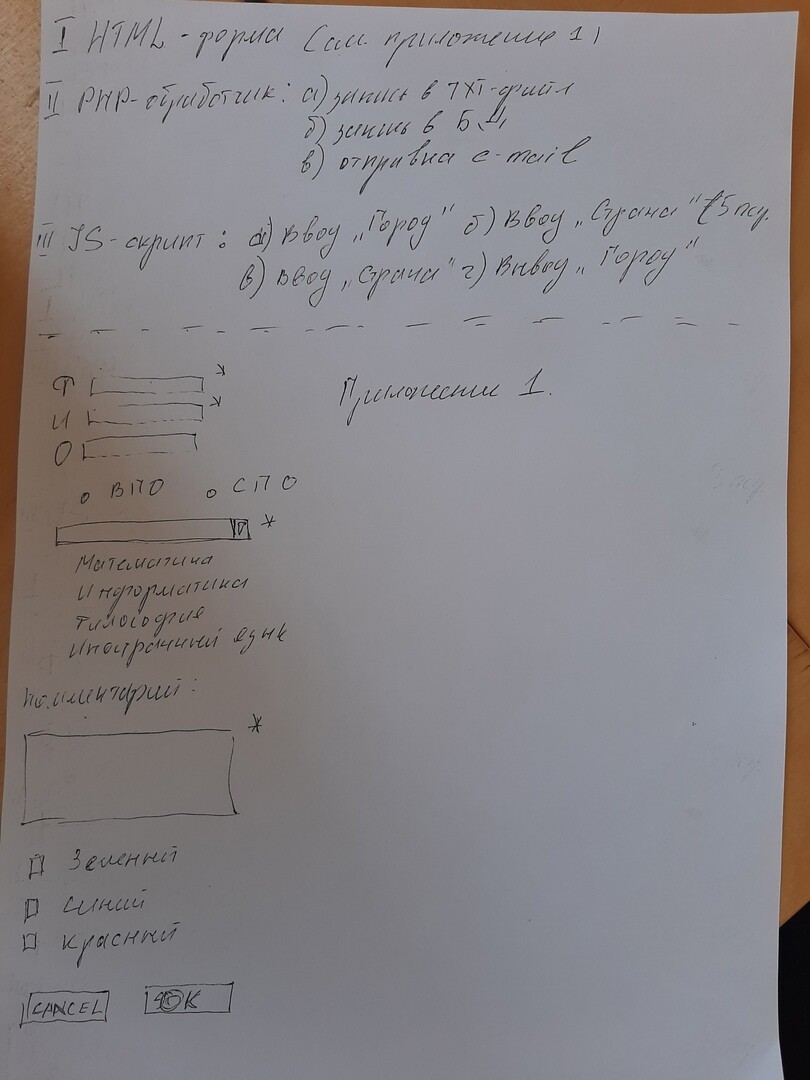 I HTML-форма (см. приложение 1)
II PHP-обработчик: а) запись в TXT-файл
б) запись в БД
в) отправка e-mail
III JS-скрипт: а) Ввод „Город" б) Ввод „Страна"
в) Ввод „Страна" г) Вывод „Город"
Приложение 1.
Ф *
И *
О
ВПО СПО
*
Математика
Информатика
Философия
Иностранный язык
Комментарий:
*
Зеленый
Синий
Красный
CANCEL OK